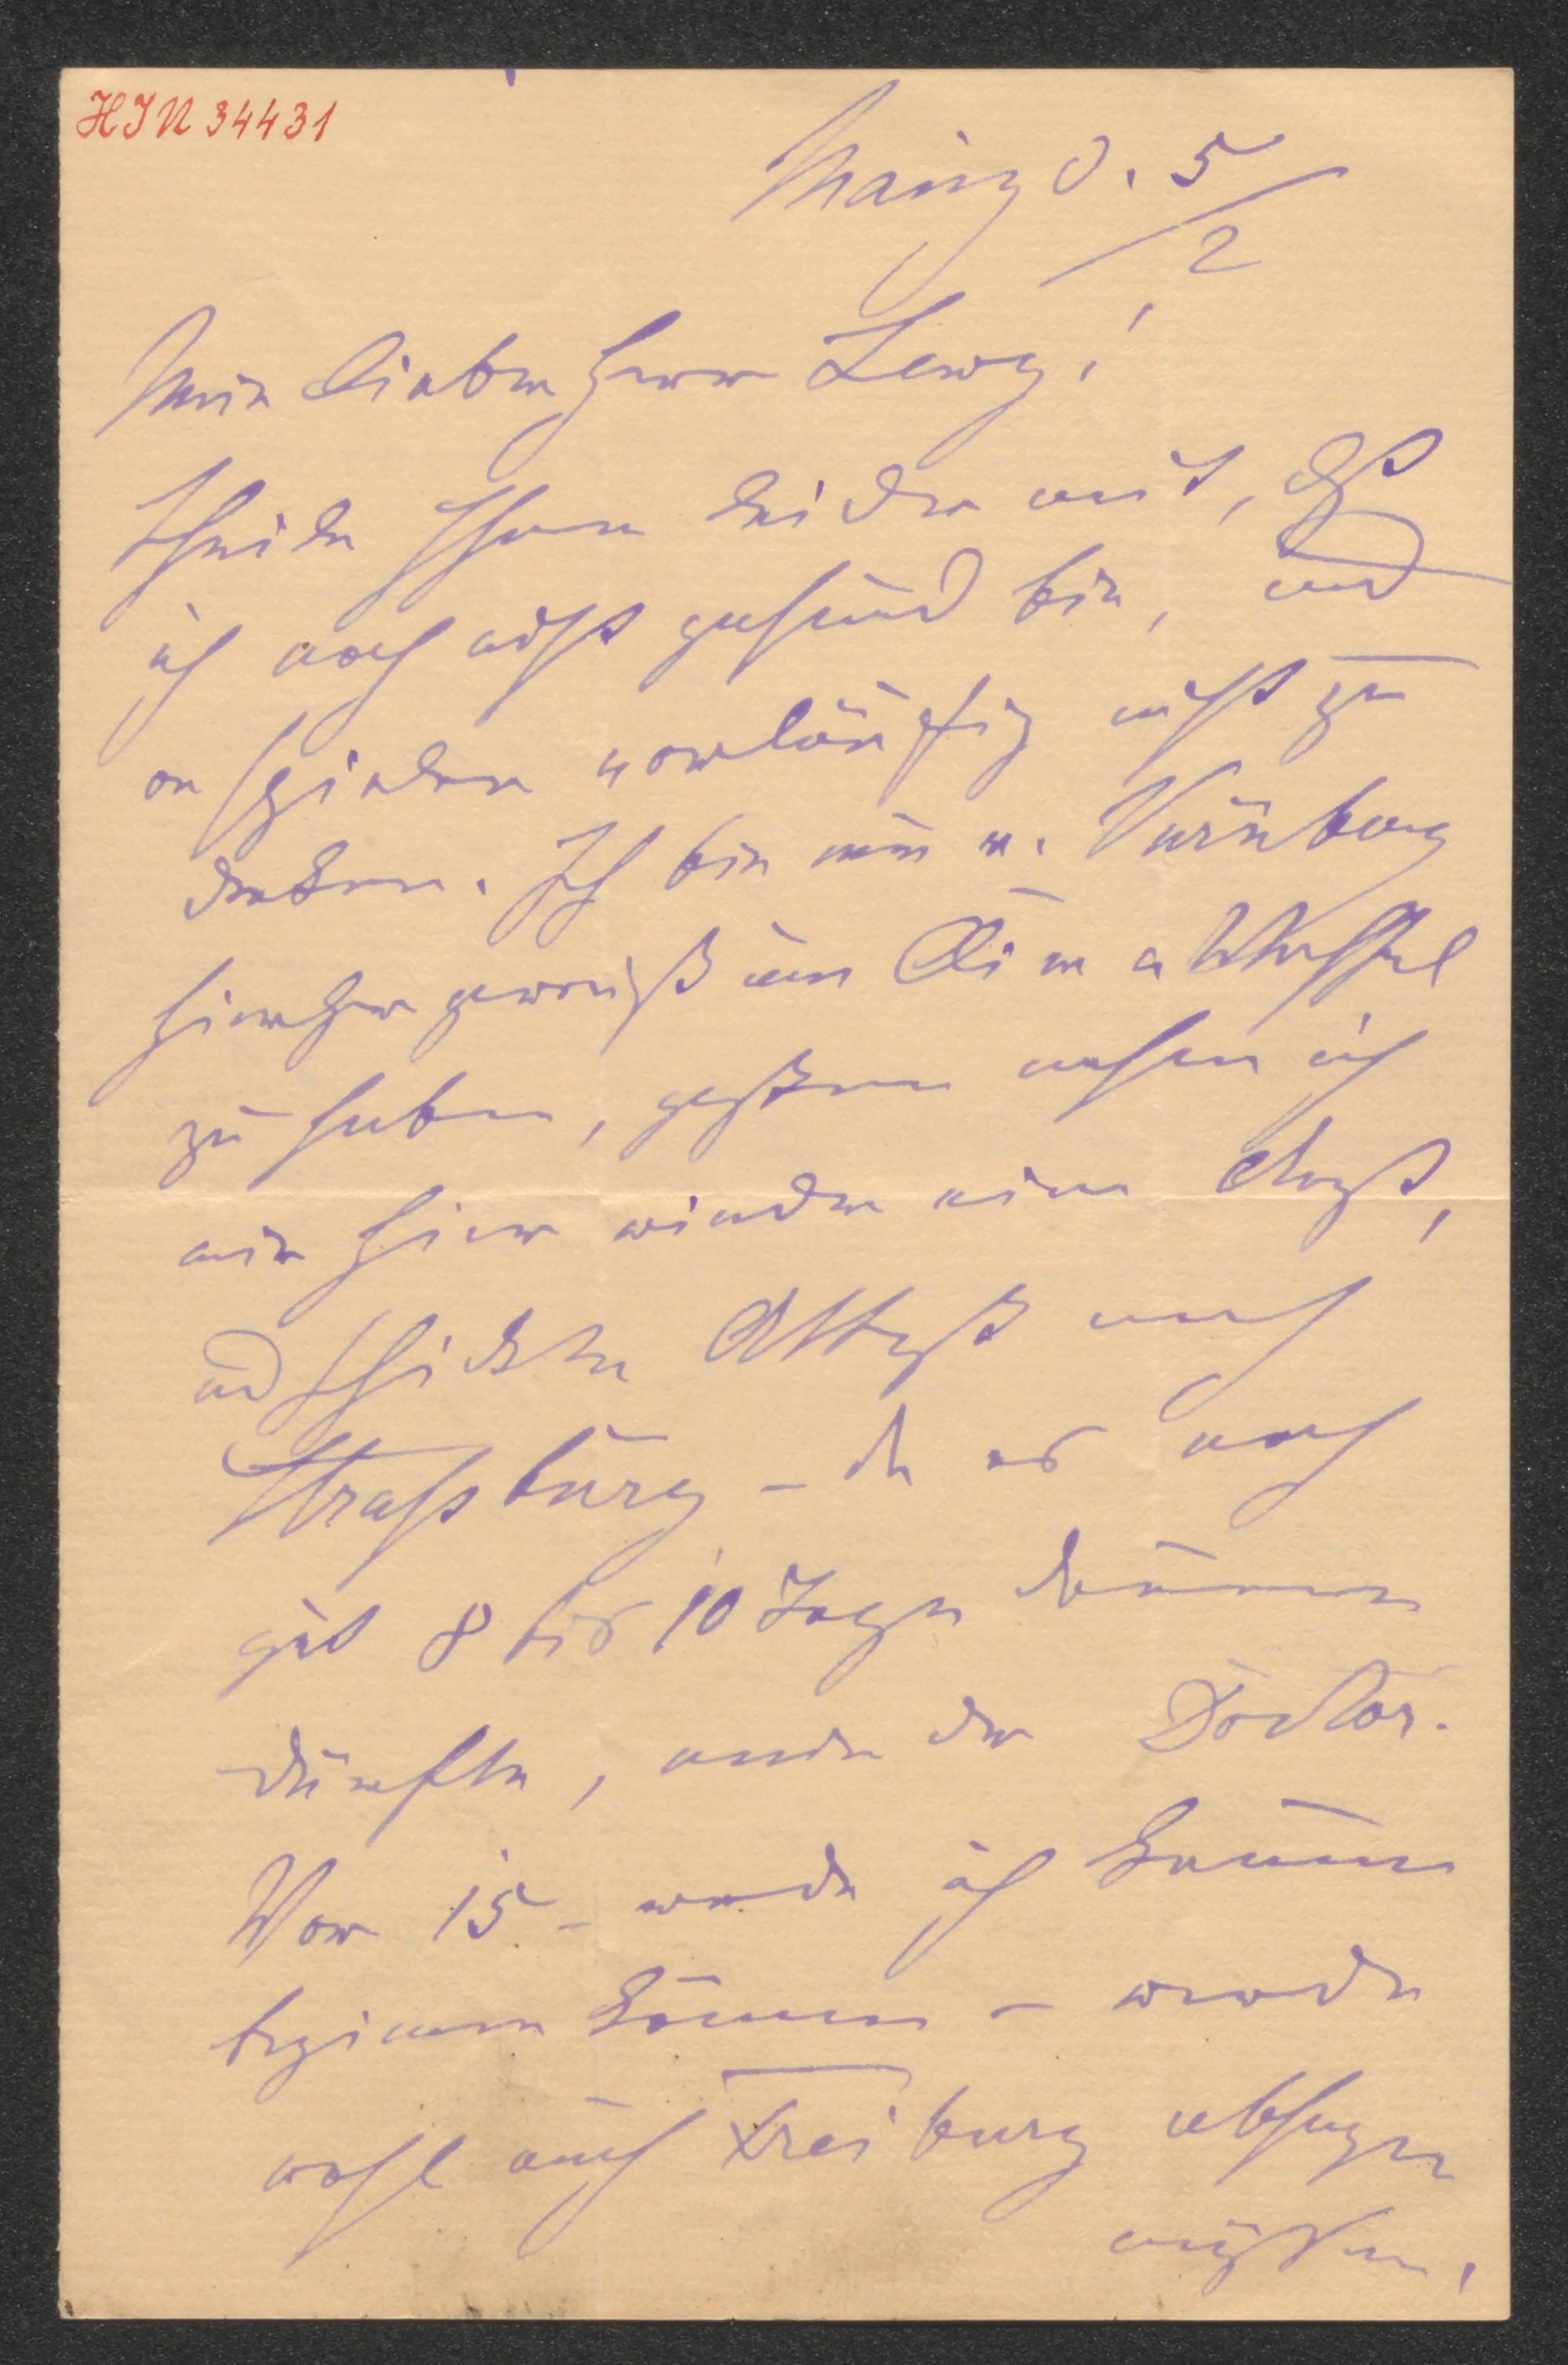 HIN 34431
Mainz d. 5/2
Mein lieber Herr Lewy!
Theile Ihnen leider mit, daß
ich noch nicht gesund bin, und
an spielen vorläufig nicht zu
denken. Ich bin nun v. Nürnberg
hierher gereist um Climawechsel
zu haben, gestern nahm ich
mir hier wieder einen Arzt,
und schickte Attest nach
Strassburg – da es noch
gut 8 bis 10 Tage dauern
dürfte, meinte der Doctor.
Vor 15 – werde ich kaum
beginnen können – werde
wohl auch Freiburg absagen
müssen,